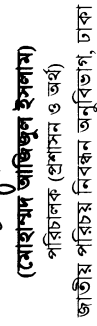 (মোহাম্মদ আজিজুল ইসলাম)
পরিচালক (প্রশাসন ও অর্থ)
জাতীয় পরিচয় নিবন্ধন অনুবিভাগ, ঢাকা